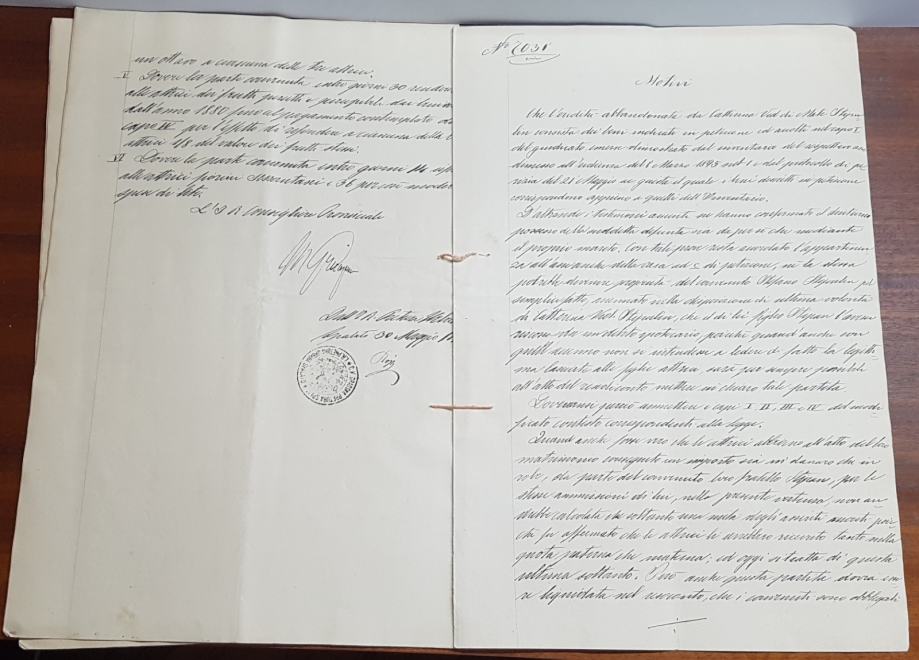 un ottavo a ciascuna delle tre attrici.
V Dovere la parte convenuta entro giorni 30 rendere
alle attrici dei frutti percetti e percepibili dai beni
dall'anno 1880 sino al pagamento contemplato da
capo IV per l'effetto di rifondere a ciascuna delle
attrici 1/8 del valore dei frutti stessi.
VI Dovere la parte convenuta entro giorni 14
alle attrici fiorini sessantuni e 56 per con
spese di lite.
L'I R Consigliere Provinciale
Dall' I R Pretura
Spalato 30 Maggio
No 2031
Motivi
Che l'eredità abbandonata da Catterina Ved. di Mate
consista dei beni indicati in petizione ed accolti nel capo I
del giudicato emerse dimostrato dal inventario del
dimesso all'udienza del Marzo 1895 sub 1 e del protocollo di
perizia del 21 Maggio a.c. giusta il quale i beni descritti in petizione
corrispondono appieno a quelli dell'Inventario.
D'altronde i testimoni assunti in hanno confermato il
possesso della suddetta defunta sia da per sè che mediante
il proprio marito. Con tale prova resta escordato l'appartenen-
za all'asse anche della casa ad c di petizione, nè la stessa
potrebbe divenire proprietà del convenuto Stefano pel
semplice fatto, accennato nella disposizione di ultima volontà
di Catterina Ved. che il di lei figlio Stipan l'avesse
da un debito ipotecario, poichè quand'anche con
quell'accenno non si intendesse a ledere di fatto la legitti-
ma lasciata alle figlie attrici, sarà pur sempre possibile
all'atto del rendiconto mettere in chiaro tale partita
Dovevansi perciò ammettere i capi I II, III e IV del modi-
ficato conchiso corrispondenti alla legge.
Quand'anche fosse vero che le attrici abbiano all'atto del loro
matrimonio conseguito un importo sia in danaro che in
robe, da parte del convenuto loro fratello Stipan, per le
stesse ammissioni di lui, nella presente vertenza, non an-
drebbe calcolata che soltanto una metà degli asseriti poi-
chè fu affermato che le attrici le avrebbero ricevuto tanto nella
quota paterna che materna; ed oggi si tratta di questa
ultima soltanto. Però anche questa partita dovrà esse-
re liquidata nel resoconto, che i convenuti sono obbligati